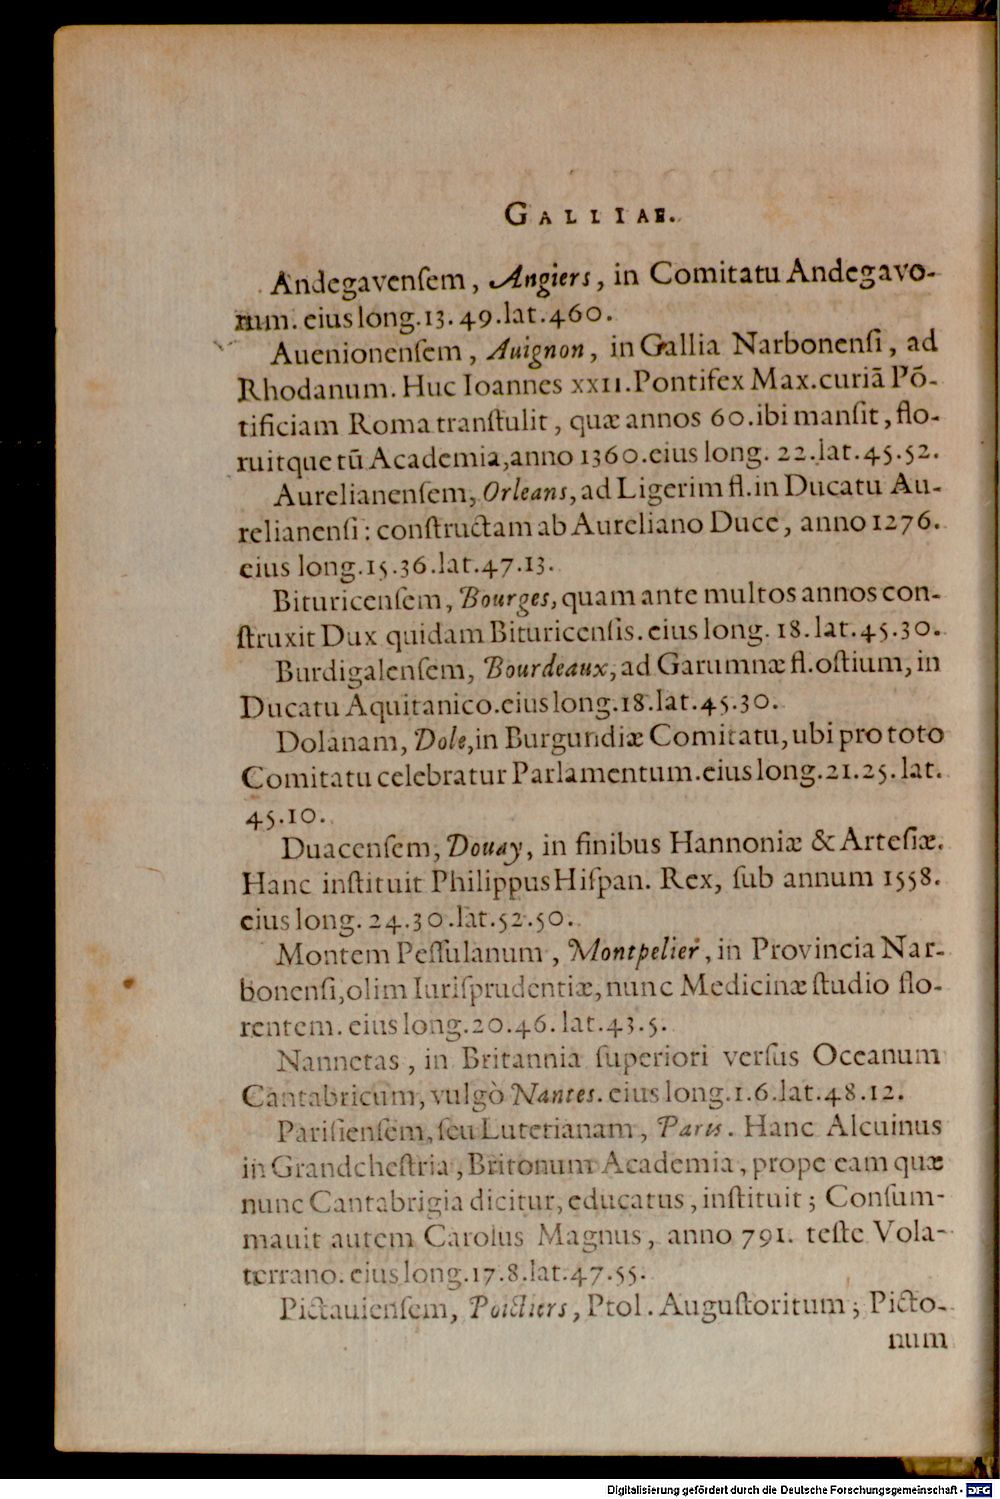 GALLIAE.
Andegavenſem, Angiers, in Comitatu Andegavo-
rum. eius long. 13. 49. lat. 460.
Auenionenſem, Auignon, in Gallia Narbonenſi, ad
Rhodanum. Huc Ioannes XXII. Pontifex Max. curiã Põ-
tificiam Roma tranſtulit, quæ annos 60. ibi manſit, flo-
ruitque tũ Academia, anno 1360. eius long. 22. lat. 45. 52.
Aurelianenſem, Orleans, ad Ligerim fl. in Ducatu Au-
relianenſi: conſtructam ab Aureliano Duce, anno 1276.
eius long. 15. 36. lat. 47. 13.
Bituricenſem, Bourges, quam ante multos annos con-
ſtruxit Dux quidam Bituricenſis. eius long. 18. lat. 45. 30.
Burdigalenſem, Bourdeaux, ad Garumnæ fl. oſtium, in
Ducatu Aquitanico. eius long. 18. lat. 45. 30.
Dolanam, Dole, in Burgundiæ Comitatu, ubi pro toto
Comitatu celebratur Parlamentum. eius long. 21. 25. lat.
45. 10.
Duacenſem, Douay, in finibus Hannoniæ & Arteſiæ.
Hanc inſtituit Philippus Hiſpan. Rex, ſub annum 1558.
eius long. 24. 30. lat. 52. 50.
Montem Peſſulanum, Montpelier, in Provincia Nar-
bonenſi, olim Iuriſprudentiæ, nunc Medicinæ ſtudio flo-
rentem. eius long. 20. 46. lat. 43. 5.
Nannetas, in Britannia ſuperiori verſus Oceanum
Cantabricum, vulgò Nantes. eius long. 1. 6. lat. 48. 12.
Pariſienſem, ſeu Lutetianam, Paris. Hanc Alcuinus
in Grandcheſtria, Britonum Academia, prope eam quæ
nunc Cantabrigia dicitur, educatus, inſtituit; Conſum-
mauit autem Carolus Magnus, anno 791. teſte Vola-
terrano. eius long. 17. 8. lat. 47. 55.
Pictauienſem, Poictiers, Ptol. Auguſtoritum; Picto-
num
Digitalisierung gefördert durch die Deutsche Forschungsgemeinschaft - DFG